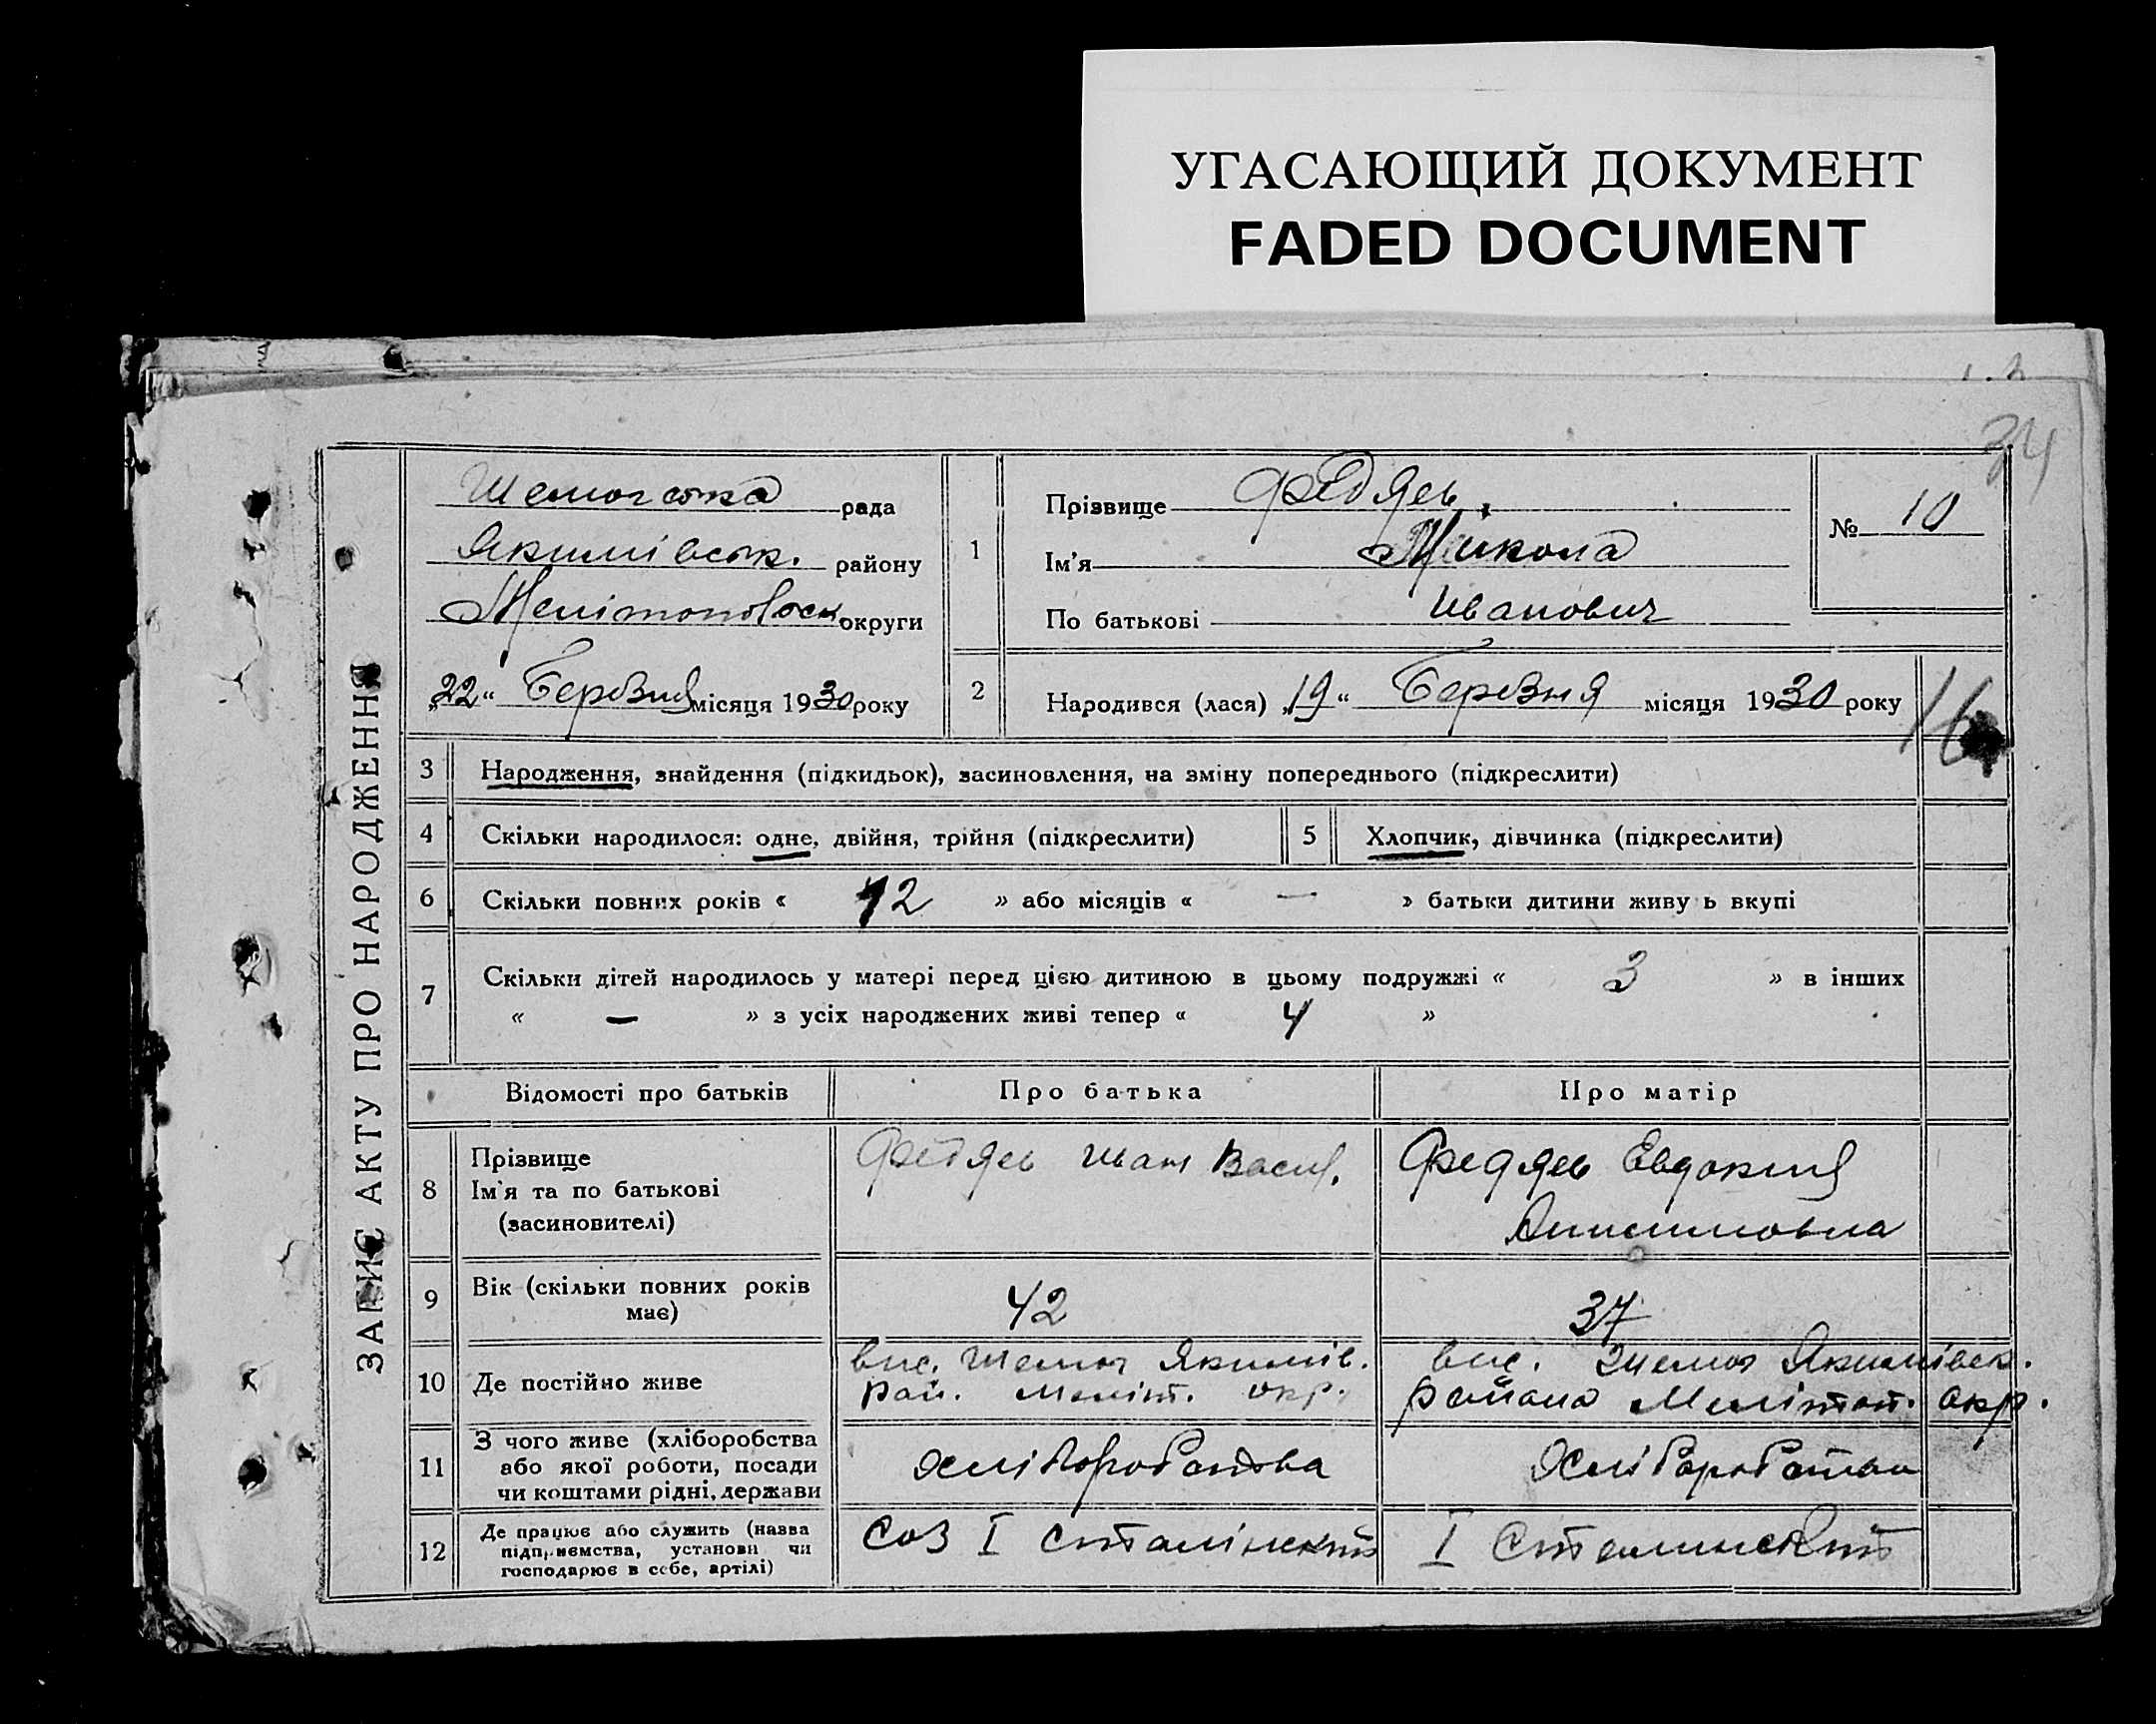 УГАСАЮЩИЙ ДОКУМЕНТ
FADED DOCUMENT
34
ЗАПИС АКТУ ПРО НАРОДЖЕННЯ
Шемогська рада
Якимівськ. району
Мелітопольськ округи
„22“ Березня місяця 1930 року
1
Прізвище Федяев
Ім'я Микола
По батькові Иванович
№ 10
2 Народився (лася) „19“ Березня місяця 1930 року
16
3 Народження, знайдення (підкидьок), засиновлення, на зміну попереднього (підкреслити)
4 Скільки народилося: одне, двійня, трійня (підкреслити)
5 Хлопчик, дівчинка (підкреслити)
6 Скільки повних років « 12 » або місяців « — » батьки дитини живу ь вкупі
7 Скільки дітей народилось у матері перед цією дитиною в цьому подружжі « 3 » в інших
« — » з усіх народжених живі тепер « 4 »
Відомості про батьків Про батька Про матір
8 Прізвище
Ім'я та по батькові
(засиновителі)
Федяев Иван Васил.
Федяев Евдокия
Анисимовна
9 Вік (скільки повних років
має)
42
37
10 Де постійно живе
вис. Шемог Якимів.
рай. Меліт. окр.
вис. Шемог Якимівск.
района Мелітоп. окр.
11 З чого живе (хліборобства
або якої роботи, посади
чи коштами рідні, держави
12 Де працює або служить (назва
підприємства, установи чи
господарює в себе, артілі)
Соз I Сталінский
I Сталинский